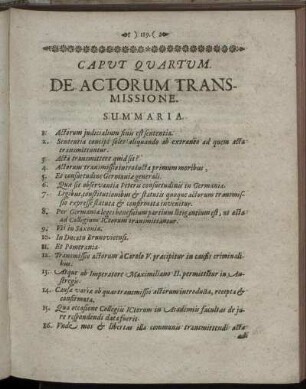 ) 119. (
CAPUT QUARTUM.
DE ACTORUM TRANS-
MISSIONE.
SUMMARIA.
1. Actorum judicialium finis est sententia.
2. Sententia concipi solet aliquando ab extraneo ad quem acta
transmittuntur.
3. Acta transmittere quid sit?
4. Actorum transmissio introducta primum moribus,
5. Et consuetudine Germaniæ generali.
6. Quæ sit observantia Veteris consuetudinis in Germania.
7. Legibus, constitutionibus & statutis quoque actorum transmis-
sio expresse statuta & confirmata invenitur.
8. Per Germaniæ leges beneficium partium litigantium est, ut acta
ad Collegium ICtorum transmittantur.
9. Vti in Saxonia.
10. In Ducatu Brunovicensi.
11. Et Pomerania.
12. Transmissio actorum à Carolo V. præcipitur in causis criminali-
bus.
13. Atque ab Imperatore Maximiliano II. permittitur in Au-
stregis.
14. Causæ variæ ob quas transmissio actorum introducta, recepta &
confirmata.
15. Qua occasione Collegiis ICtorum in Academiis facultas de ju-
re respondendi data fuerit.
16. Vnde mos & libertas illa communis transmittendi acta